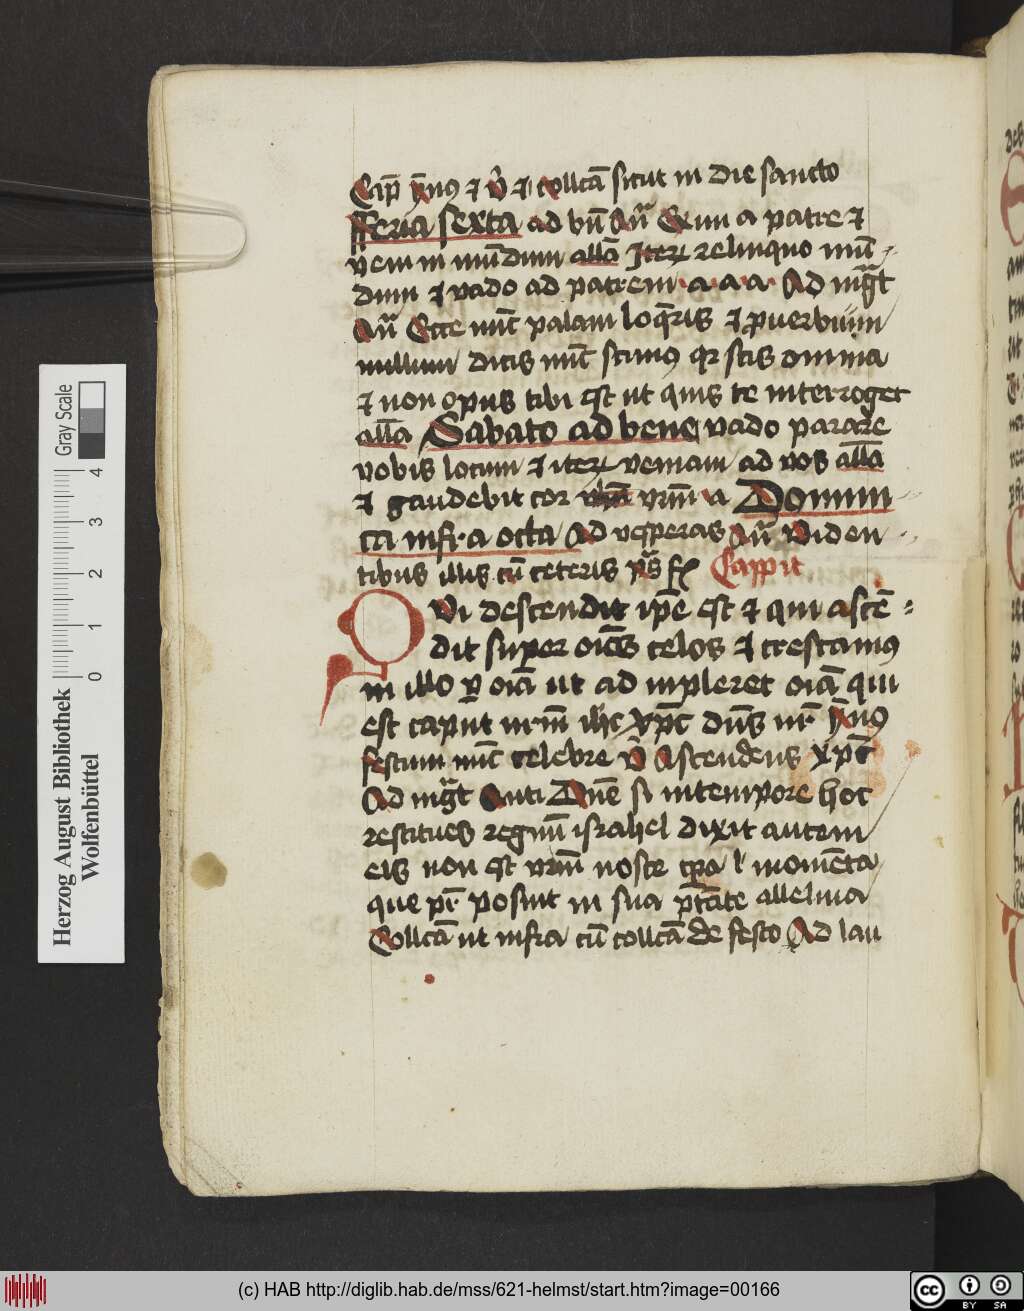 Cap̄ ÿm̄us ⁊ v̄ ⁊ collcā sicut in die sancto
Feria sexta ad bn̄ Añ Exiui a patre ⁊
veni in mūdum allā Iterū relinquo mū
dum ⁊ vado ad patrem a a a Ad mḡt
Añ Ecce nūc palam loq̄ris ⁊ prouerbium
nullum dicis nūc scimꝰ qr scis omnia
⁊ non opus tibi est ut quis te interroget
allā Sabato ad bene vado parare
vobis locum ⁊ iterū veniam ad vos allā
⁊ gaudebit cor vrm̄ a Domini
ca infra octa Ad vesperas Añ Viden
tibus illis cū ceteris ps̄ fx Cappit
QVi descendit ipē est ⁊ qui ascē
dit super oīes celos ⁊ crescamꝰ
in illo ꝑ oīa ut ad inpleret oīa qui
est caput nrm̄ ih̄c xp̄c dn̄s nr̄ ÿm̄us
festum nūc celebre v̄ Ascendens xp̄c
Ad mḡt Anti Dn̄e si in tempore hoc
restitues regnū israhel dixit autem
eis non est vrm̄ nosce tp̄a l momēta
que pr̄ posuit in sua p̄tāte alleluia
Collcā ut infra cū collcā de festo Ad lau
Herzog August Bibliothek
Wolfenbüttel
Gray Scale
0 1 2 3 4
(c) HAB http://diglib.hab.de/mss/621-helmst/start.htm?image=00166
cc BY SA